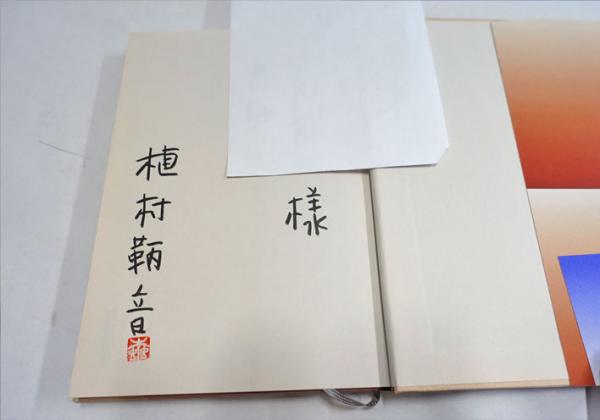 様
植村鞆音